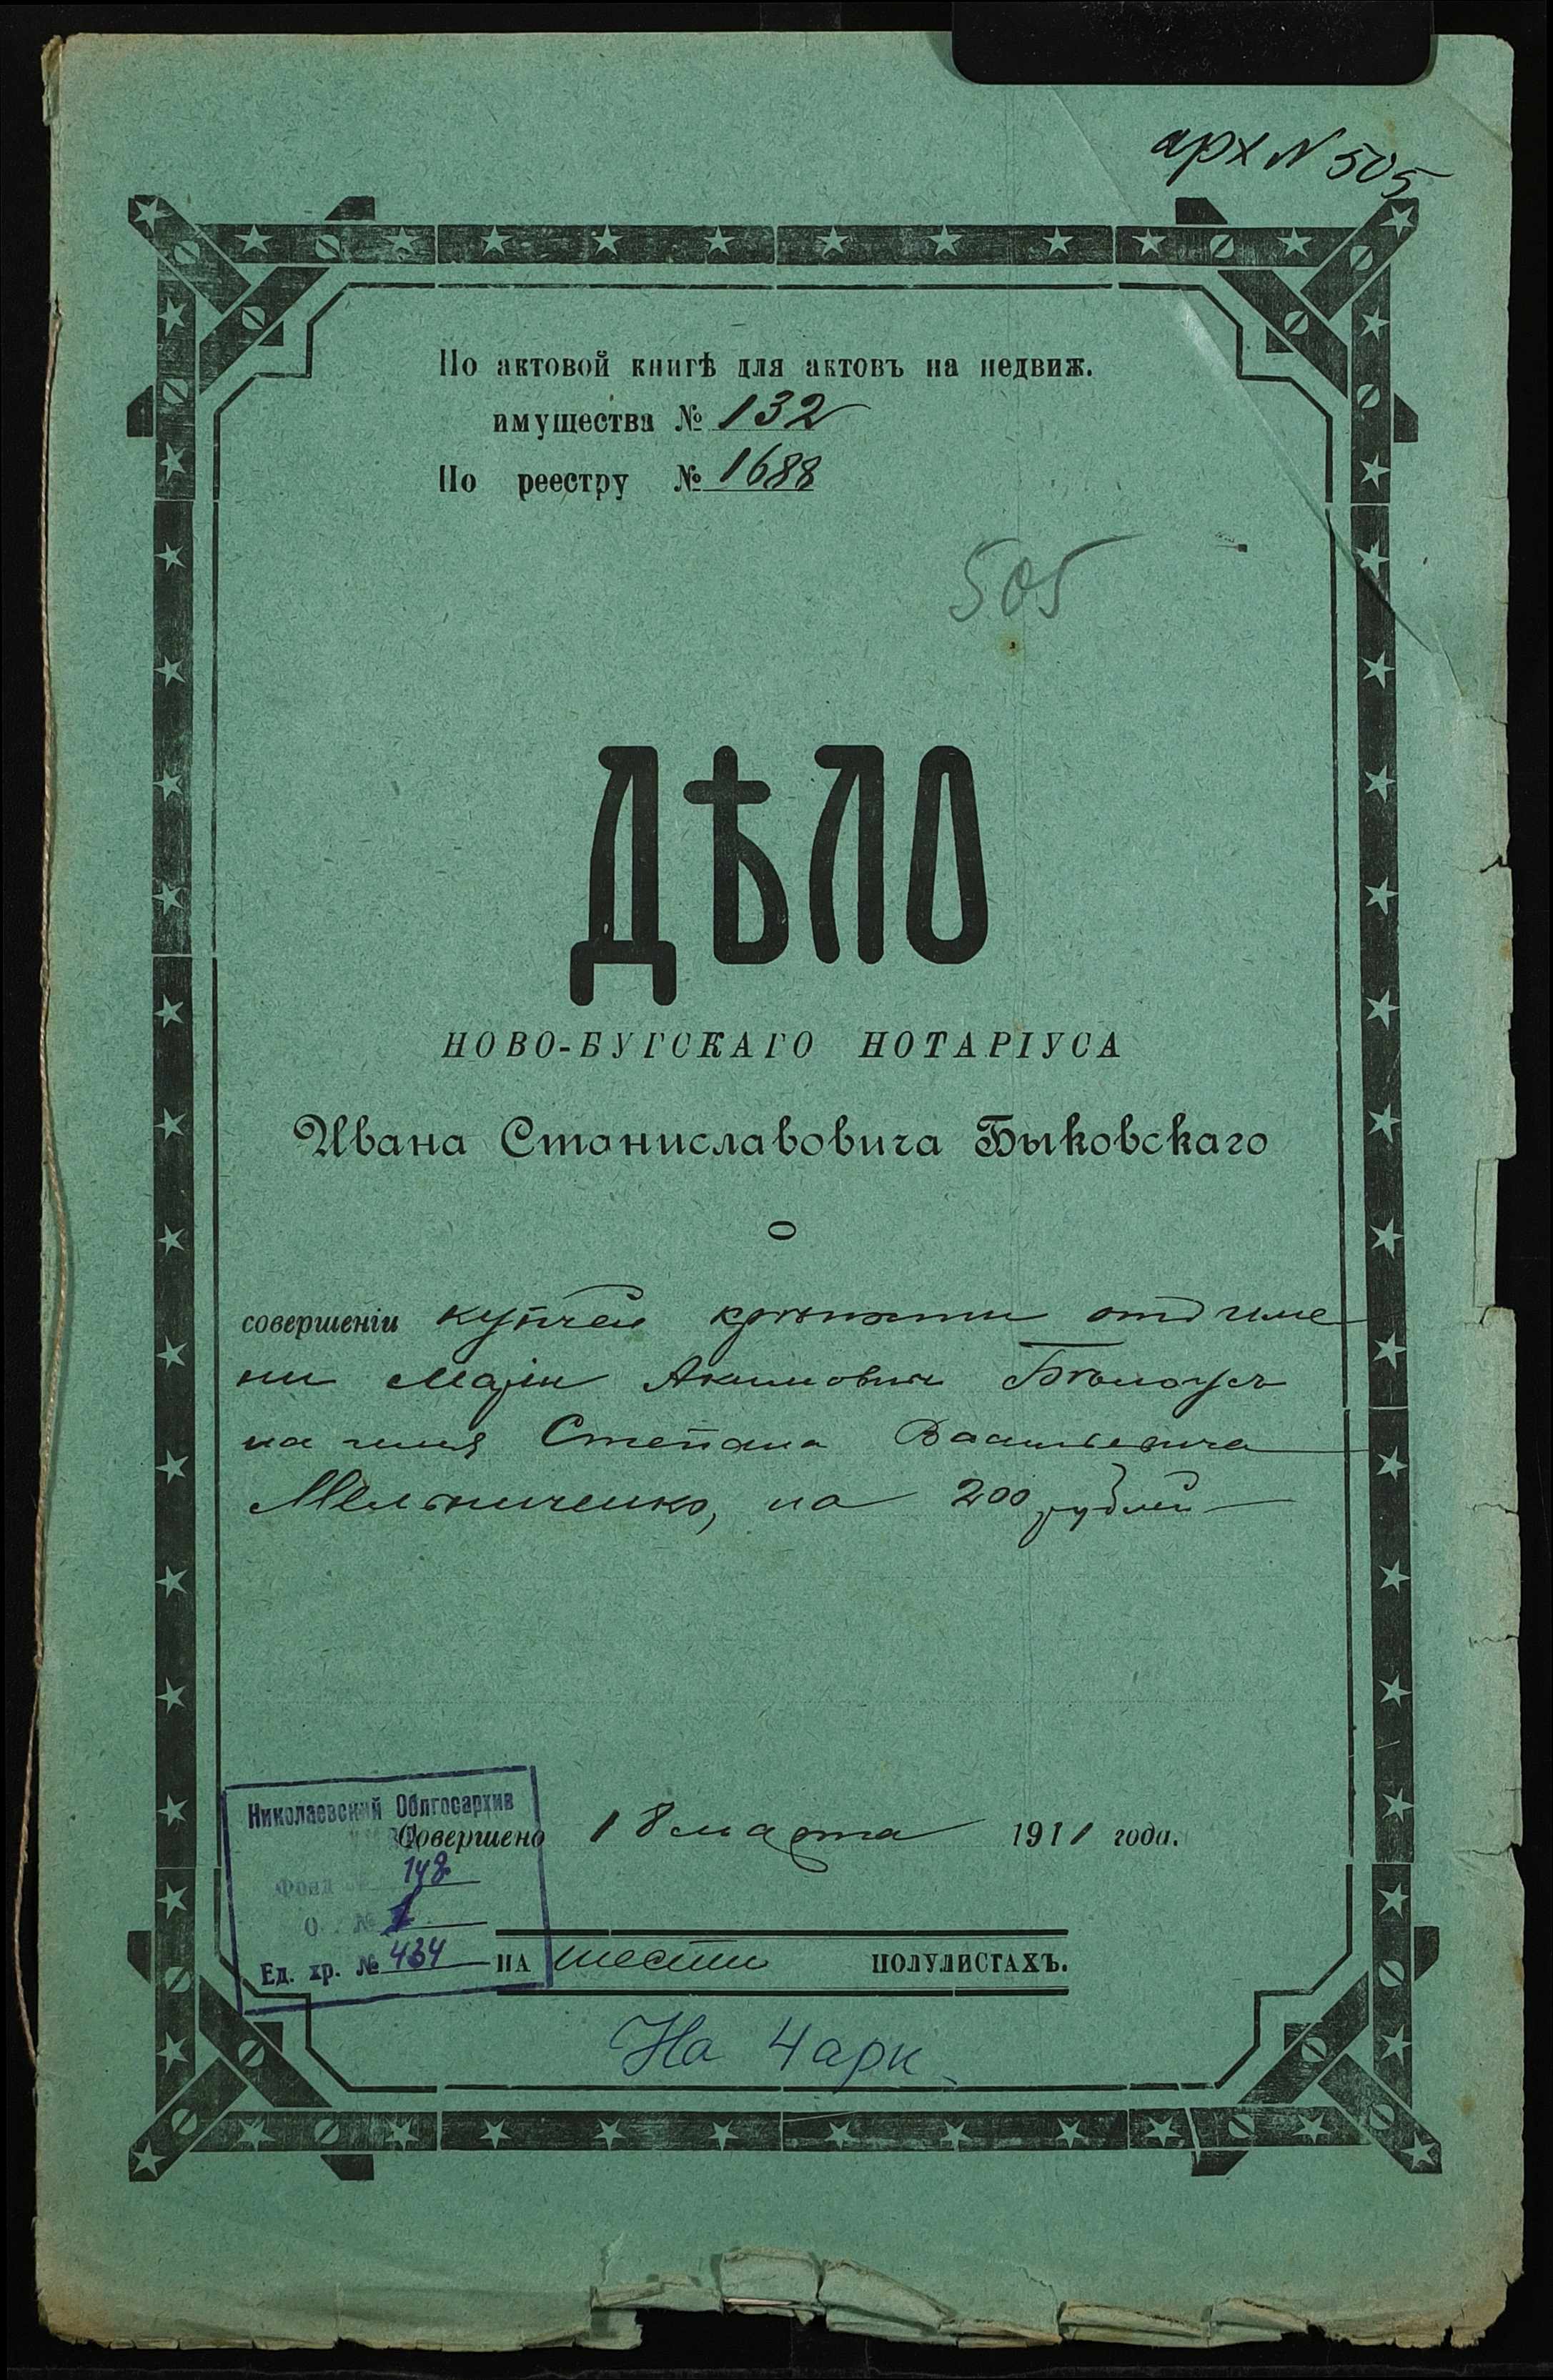 арх N 505
По актовой книгѣ для актовъ на недвиж.
имущества № 132
По реестру № 1688
505
ДѢЛО
НОВО-БУГСКАГО НОТАРІУСА
Ивана Станиславовича Быковскаго
О
совершеніи купчей крѣпости отъ име
ни Акимовны Бѣлоусъ
на имя Степана Васильевича
Мельниченко, на 200 рублей
Николаевский Облгосархив
Совершено 18 марта 1911 года.
Фонд 148
О. № 1
Ед. хр. № 434
НА шести ПОЛУЛИСТАХЪ.
На 4 арк.